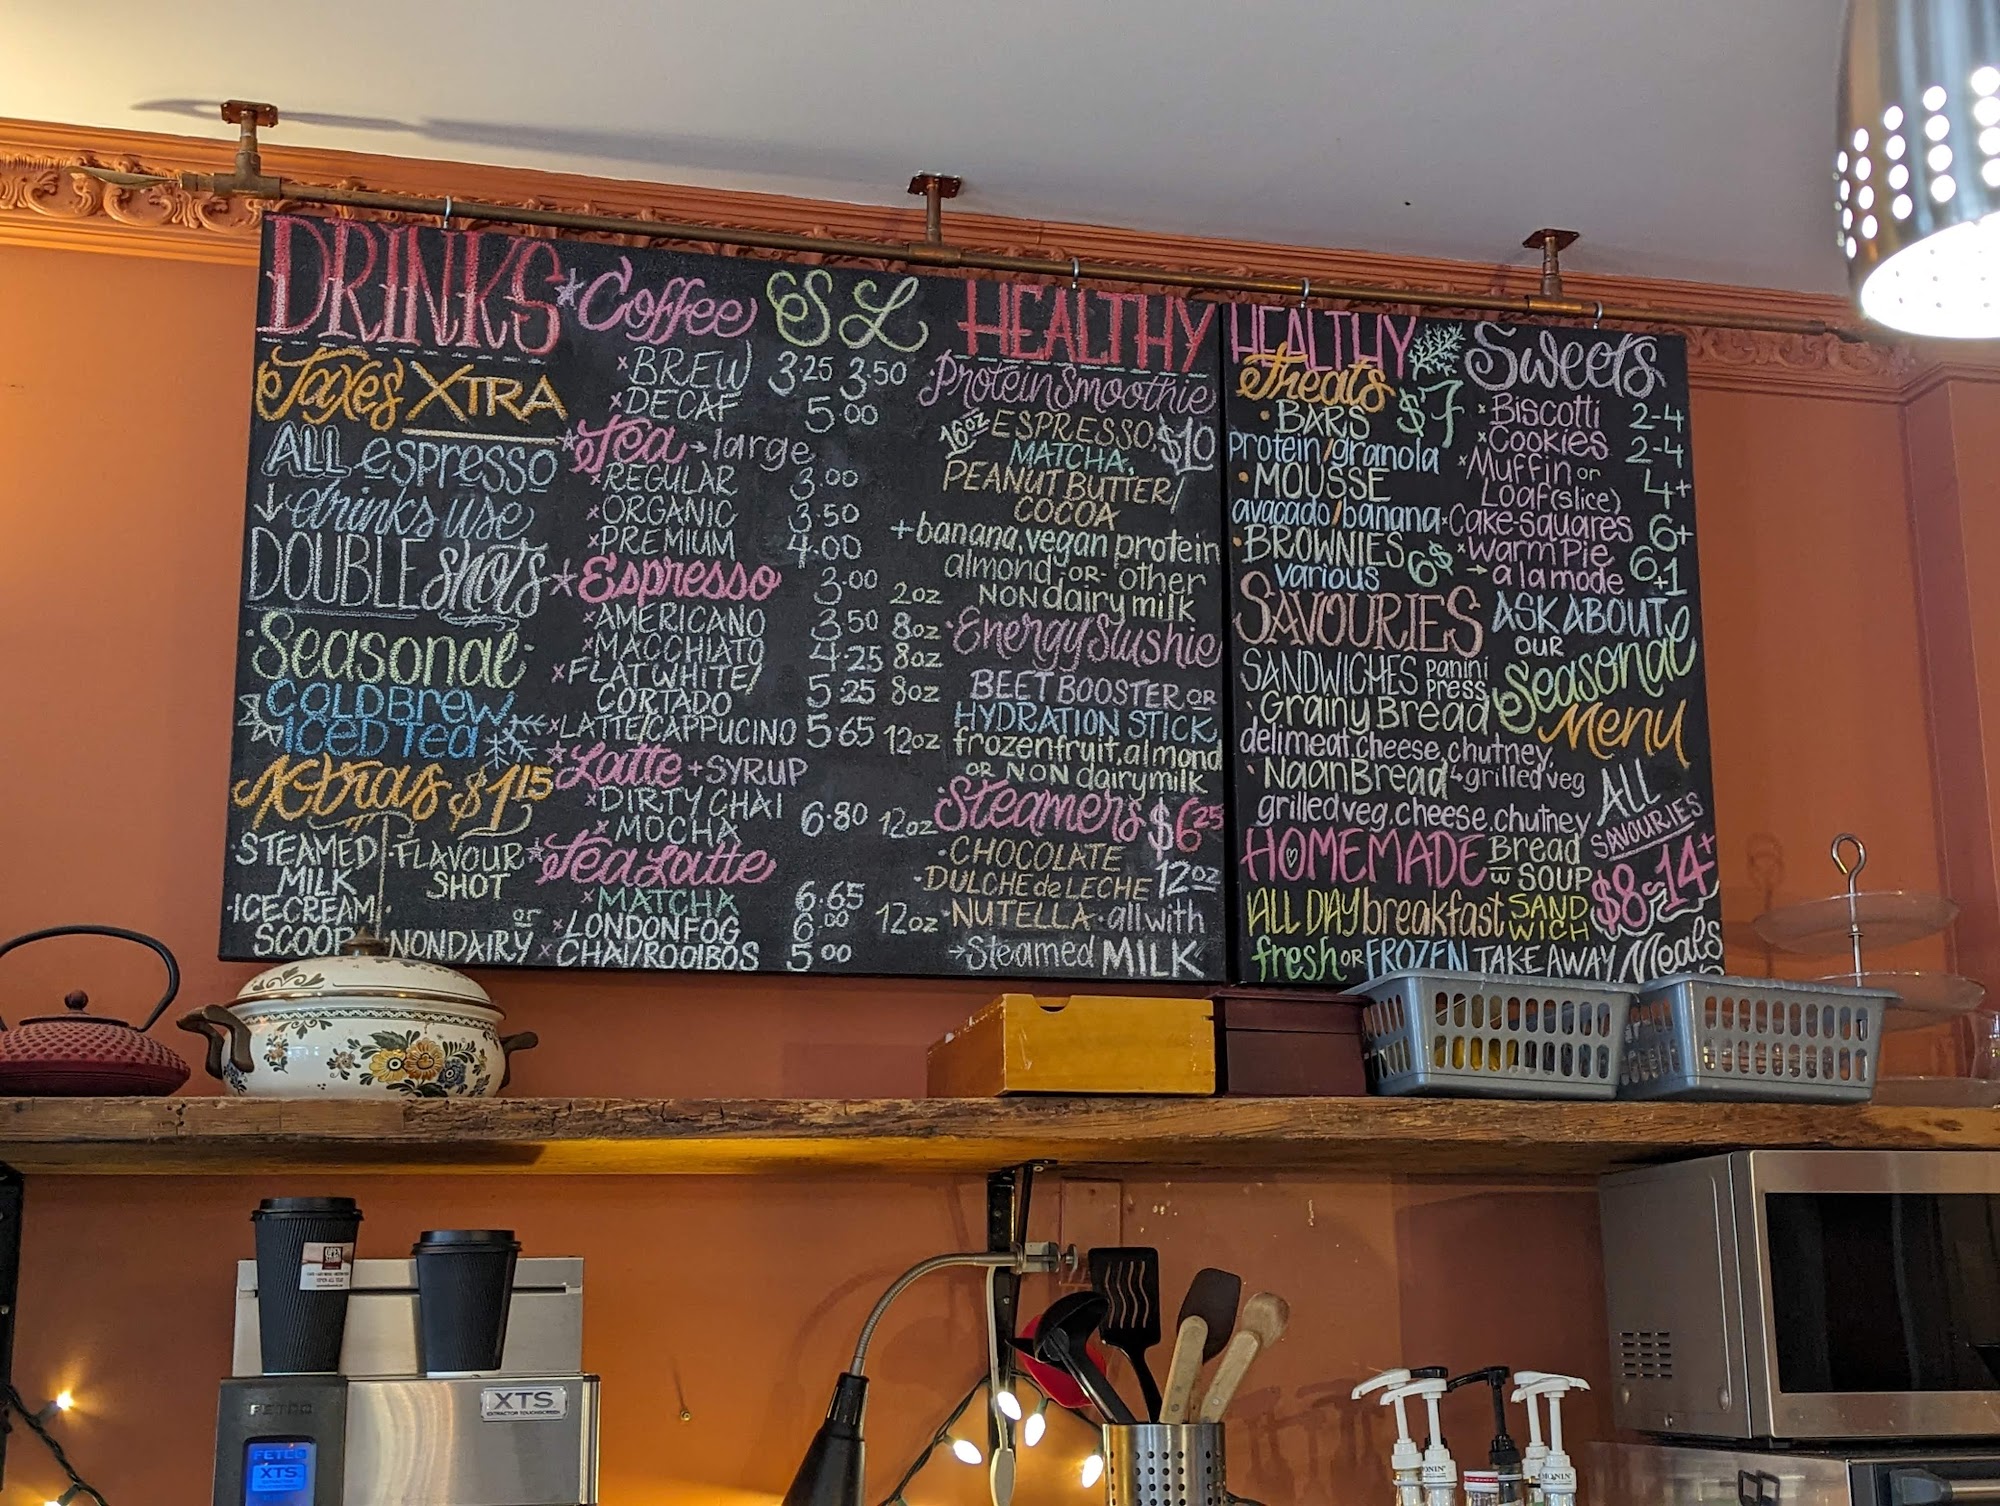 DRINKS
Taxes XTRA
ALL espresso
drinks use
DOUBLE shots
Seasonal
COLD BREW
ICED Tea
Xtras $1.15
STEAMED
MILK
ICE CREAM
SCOOP
FLAVOUR
SHOT
or
NONDAIRY
Coffee S L
BREW 3.25 3.50
DECAF 5.00
Tea large
REGULAR 3.00
ORGANIC 3.50
PREMIUM 4.00
Espresso 3.00 2oz
AMERICANO 3.50 8oz
MACCHIATO 4.25 8oz
FLAT WHITE/
CORTADO 5.25 8oz
LATTE/CAPPUCINO 5.65 12oz
Latte + SYRUP
DIRTY CHAI
MOCHA 6.80 12oz
Tea Latte
MATCHA 6.65
LONDON FOG 6.00 12oz
CHAI/ROOIBOS 5.00
HEALTHY
Protein Smoothie
16oz ESPRESSO, $10
MATCHA,
PEANUT BUTTER/
COCOA
+ banana, vegan protein
almond OR other
NON dairy milk
Energy Slushie
BEET BOOSTER OR
HYDRATION STICK
frozen fruit, almond
OR NON dairy milk
Steamers $6.25
CHOCOLATE
DULCHE de LECHE 12oz
NUTELLA all with
Steamed MILK
HEALTHY
Treats
BARS $7
protein/granola
MOUSSE
avacado/banana
BROWNIES 6$
various
Sweets
Biscotti 2-4
Cookies 2-4
Muffin or
Loaf (slice) 4+
Cake-squares 6+
Warm Pie 6
a la mode +1
ASK ABOUT
OUR
Seasonal
Menu
SAVOURIES
SANDWICHES panini
press
Grainy Bread
deli meat, cheese, chutney,
grilled veg
Naan Bread
grilled veg, cheese, chutney
ALL
SAVOURIES
$8-14+
HOMEMADE Bread
w SOUP
ALL DAY breakfast SAND
WICH
fresh OR FROZEN TAKE AWAY Meals
OPEN
XTS
EXTRACTOR TOUCHSCREEN
FETCO
FETCO
XTS
MONIN
MONIN